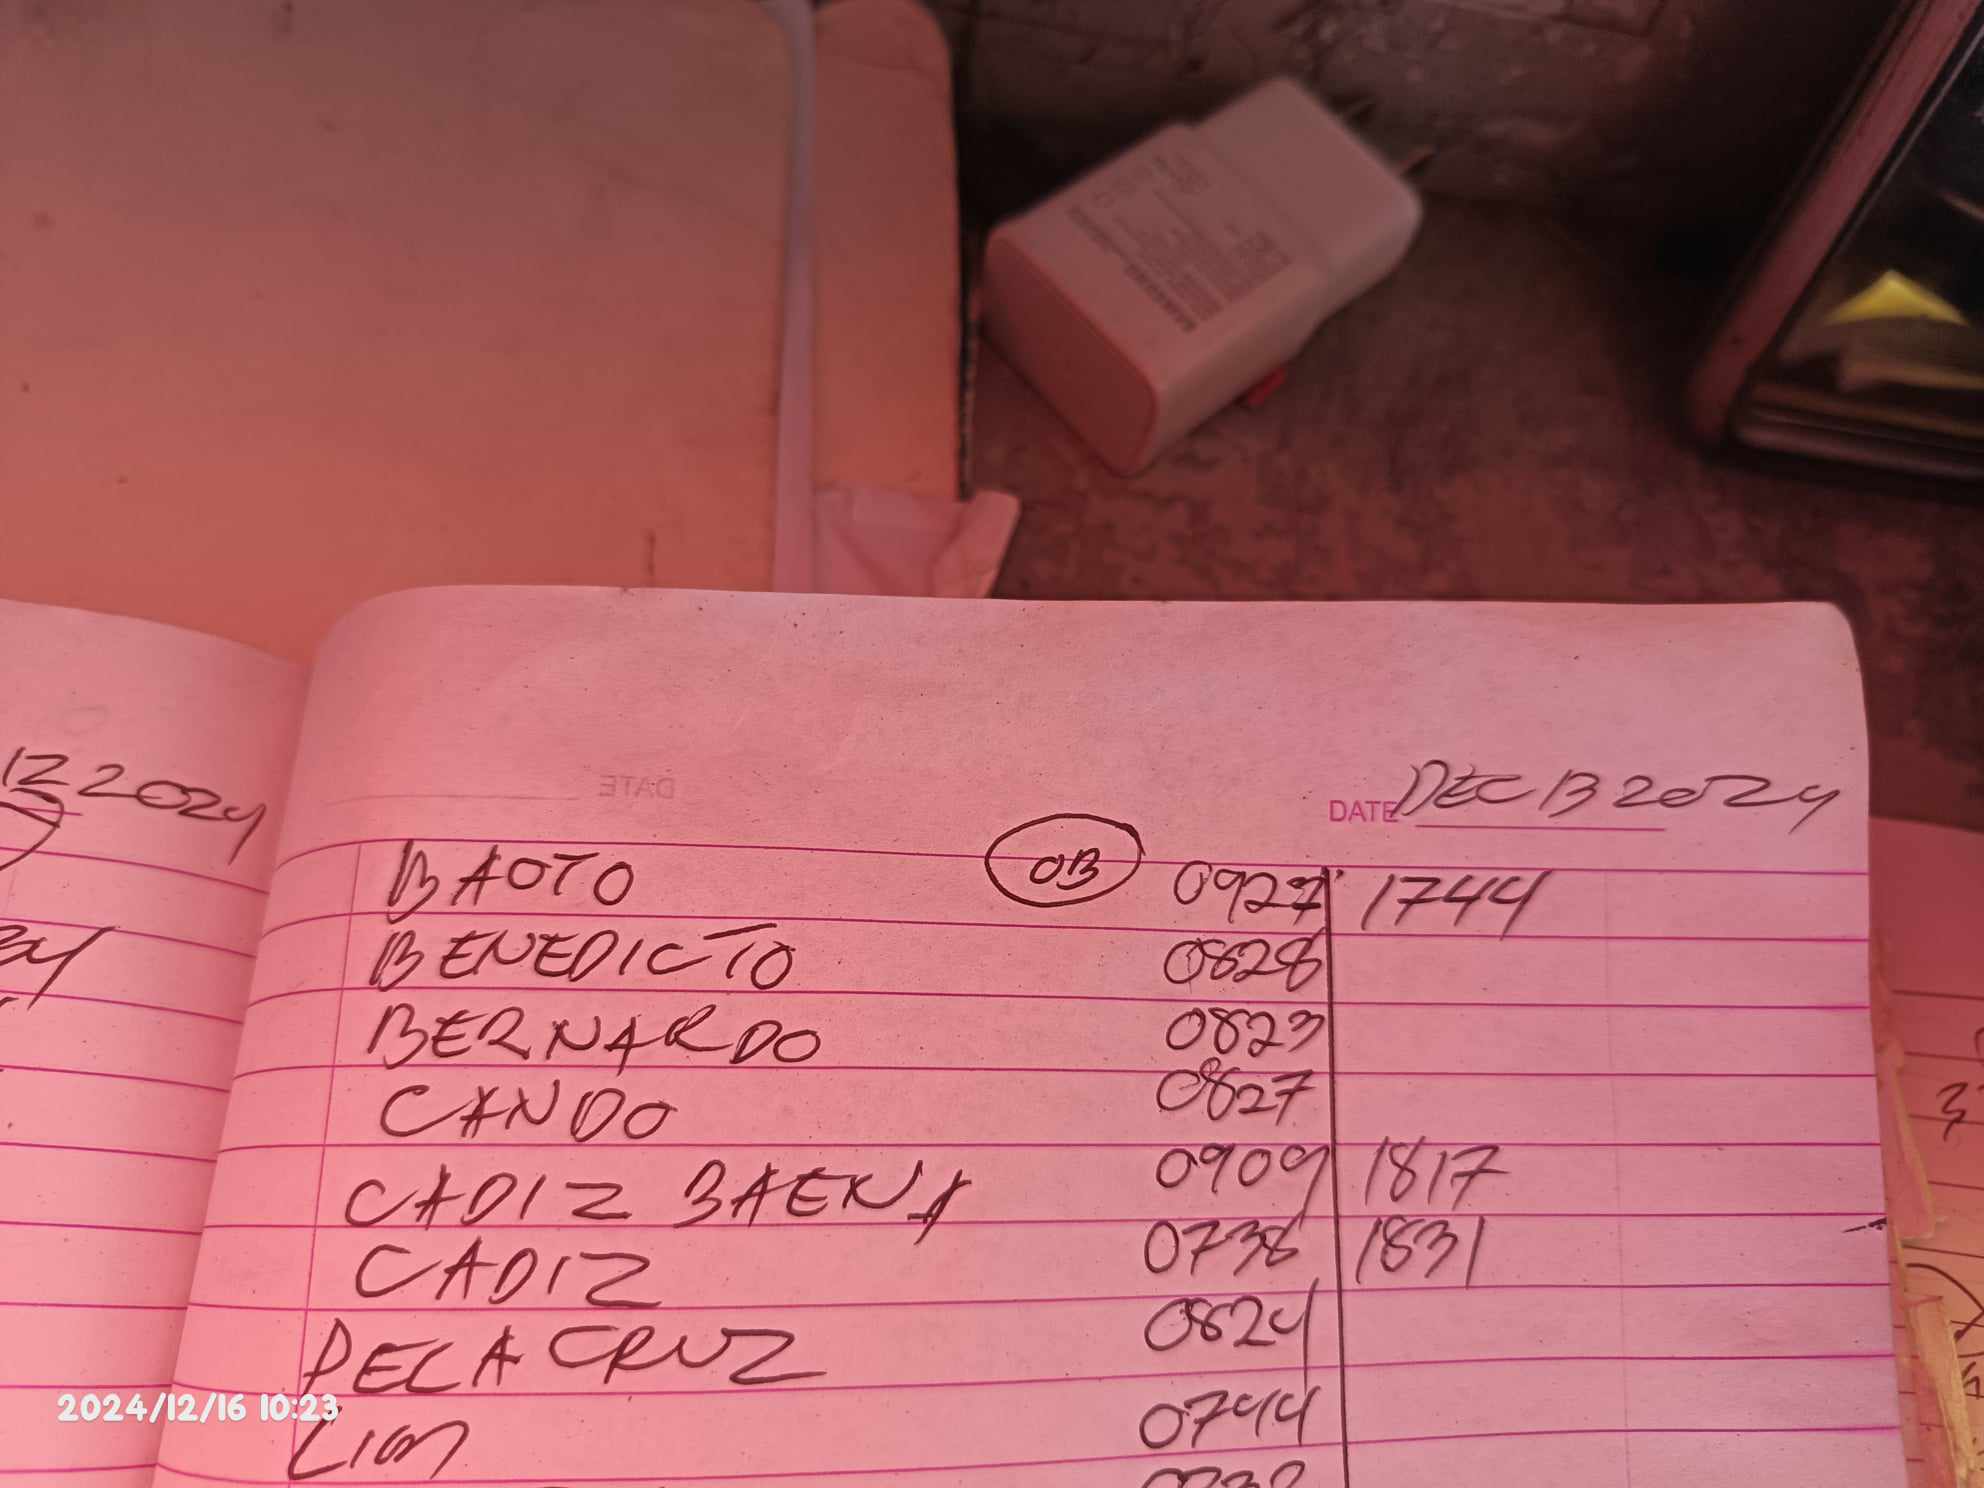 12 2024
DATE DEC 13 2024
BAOTO OB 0927 1744
BENEDICTO 0828
BERNARDO 0823
CANDO 0827
CADIZ BAENA 0909 1817
CADIZ 0738 1831
DELA CRUZ 0824
LION 0744
2024/12/16 10:23